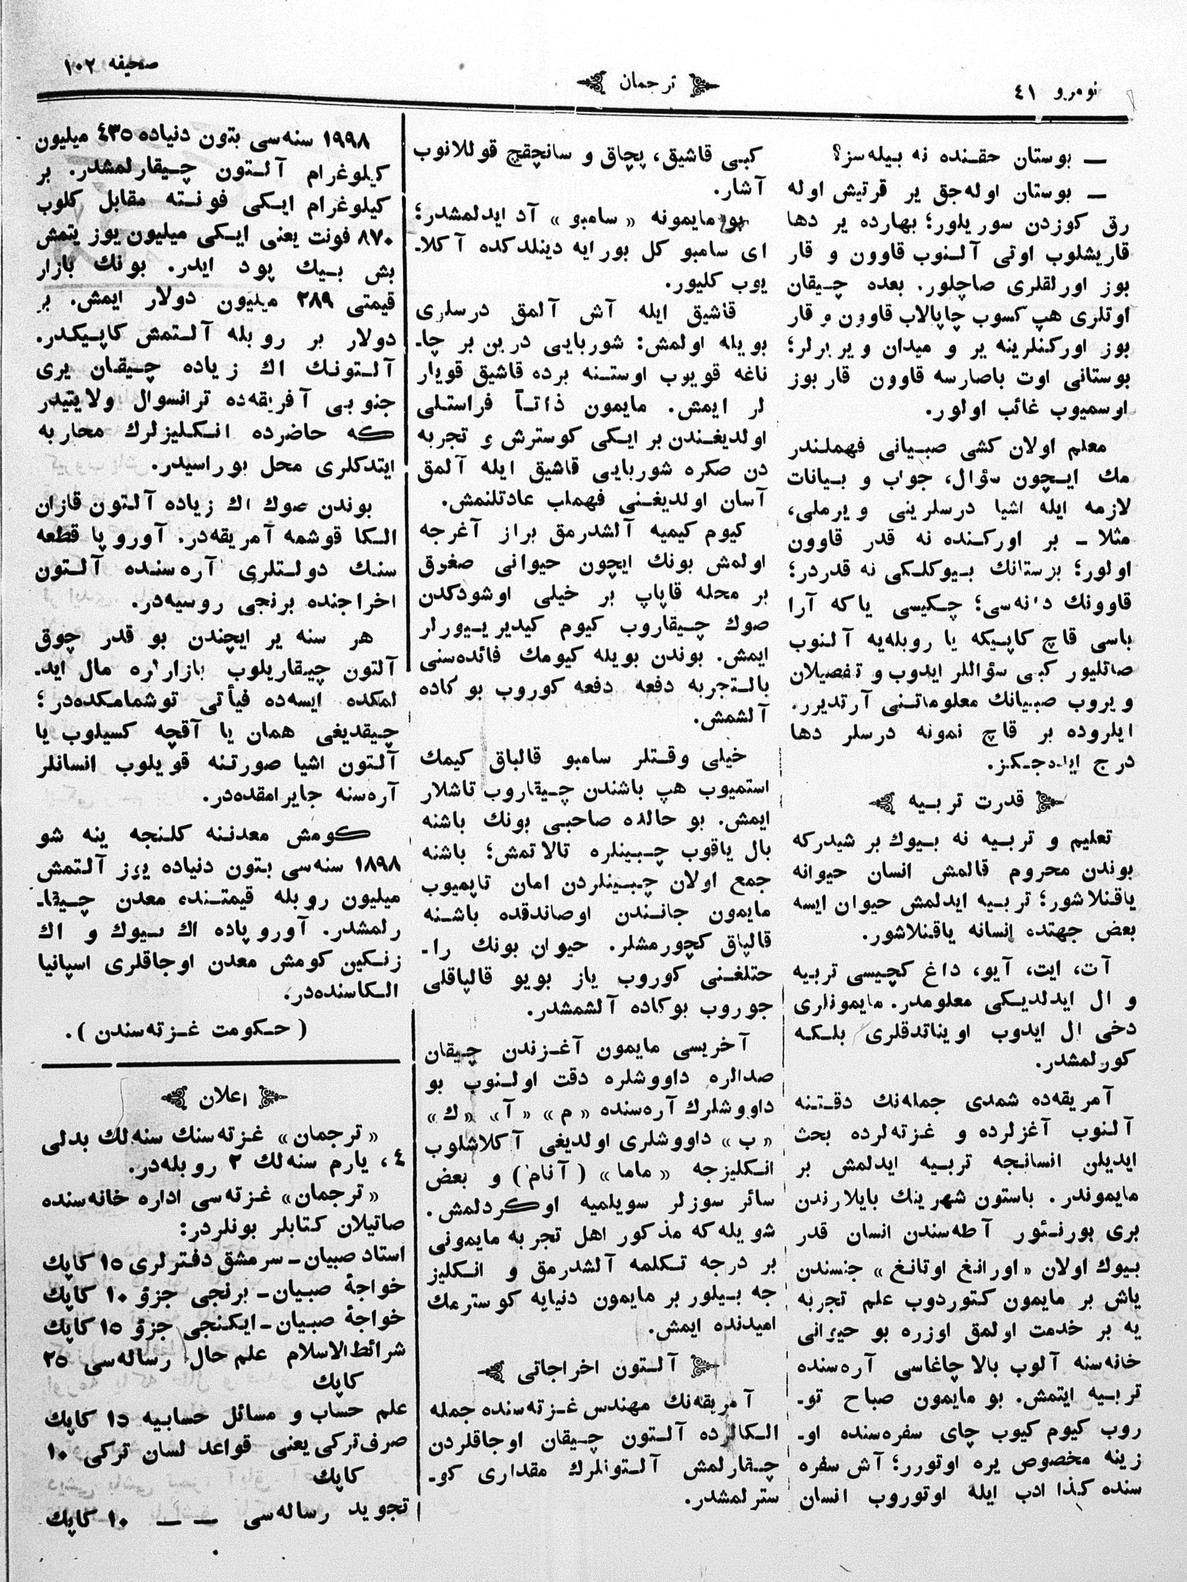 نومرو ٤١
ترجمان
صحیفه ١٠٢
— بوستان حقنده نه بیله‌سز؟
— بوستان اوله‌جق یر قرتیش اوله
رق کوزدن سوریلور؛ بهارده یر دها
قاریشلوب اوتی آلنوب قاوون و قار
بوز اورلقلری صاچلور. بعده چیقان
اوتلری هپ کسوب چاپالاب قاوون و قار
بوز اورکنلرینه یر و میدان ویریرلر؛
بوستانی اوت باصارسه قاوون قاربوز
اوسمیوب غائب اولور.
معلم اولان کشی صبیانی فهملندر
مك ایچون سؤال، جواب و بیانات
لازمه ایله اشیا درسلرینی ویرملی،
مثلا – بر اورکنده نه قدر قاوون
اولور؛ بزستانك بیوکلکی نه قدردر؛
قاوونك دانه‌سی؛ چکیسی یاکه آرا
باسی قاچ کاپیکه یا روبله‌یه آلنوب
صاتلیور کبی سؤاللر ایدوب و تفصیلان
ویروب صبیانك معلوماتنی آرتدیرر.
ایلروده بر قاچ نمونه درسلر دها
درج ایده‌جکز.
قدرت تربیه
تعلیم و تربیه نه بیوك بر شیدرکه
بوندن محروم قالمش انسان حیوانه
یاقنلاشور؛ تربیه ایدلمش حیوان ایسه
بعض جهتده انسانه یاقنلاشور.
آت، ایت، آیو، داغ کچیسی تربیه
و ال ایدلدیکی معلومدر. مایمونلری
دخی ال ایدوب اویناتدقلری بلکه
کورلمشدر.
آمریقه‌ده شمدی جمله‌نك دقتنه
آلنوب آغزلرده و غزته‌لرده بحث
ایدیلن انسانجه تربیه ایدلمش بر
مایموندر. باستون شهرینك بایلارندن
بری بورنئور آطه‌سندن انسان قدر
بیوك اولان «اورانغ اوتانغ» جنسندن
یاش بر مایمون کتوردوب علم تجربه
یه بر خدمت اولمق اوزره بو حیوانی
خانه‌سنه آلوب بالاچاغاسی آره‌سنده
تربیه ایتمش. بو مایمون صباح تو۔
روب کیوم کیوب چای سفره‌سنده او۔
زینه مخصوص یره اوتورر؛ آش سفره
سنده کذا ادب ایله اوتوروب انسان
کبی قاشیق، پچاق و سانچقچ قوللانوب
آشار.
بو مایمونه «سامبو» آد ایدلمشدر؛
ای سامبو کل بورایه دینلدکده آکلا۔
یوب کلیور.
قاشیق ایله آش آلمق درسلری
بویله اولمش: شوربایی درین بر چا۔
ناغه قویوب اوستنه برده قاشیق قویار
لر ایمش. مایمون ذاتاً فراستلی
اولدیغندن بر ایکی کوسترش و تجربه
دن صکره شوربایی قاشیق ایله آلمق
آسان اولدیغنی فهملب عادتلنمش.
کیوم کیمیه آلشدرمق براز آغرجه
اولمش بونك ایچون حیوانی صغوق
بر محله قاپاپ بر خیلی اوشودکدن
صوك چیقاروب کیوم کیدیرییورلر
ایمش. بوندن بویله کیومك فائده‌سنی
بالتجربه دفعه دفعه کوروب بوکاده
آلشمش.
خیلی وقتلر سامبو قالباق کیمك
استمیوب هپ باشندن چیقاروب تاشلار
ایمش. بو حالده صاحبی بونك باشنه
بال یاقوب چبینلره تالاتمش؛ باشنه
جمع اولان چبینلردن امان تاپمیوب
مایمون جانندن اوصاندقده باشنه
قالپاق کچورمشلر. حیوان بونك را۔
حتلغنی کوروب یاز بویو قالپاقلی
جوروب بوکاده آلشمشدر.
آخریسی مایمون آغزندن چیقان
صدالره داووشلره دقت اولنوب بو
داووشلرك آره‌سنده «م» «آ» «ك»
«ب» داووشلری اولدیغی آکلاشلوب
انکلیزجه «ماما» (آنام) و بعض
سائر سوزلر سویلمیه اوکردلمش.
شویله‌که مذکور اهل تجربه مایمونی
بر درجه تکلمه آلشدرمق و انکلیز
جه بیلور بر مایمون دنیایه کوسترمك
امیدنده ایمش.
آلتون اخراجاتی
آمریقه‌نك مهندس غزته‌سنده جمله
الکالرده آلتون چیقان اوجاقلردن
چقارلمش آلتونلرك مقداری کو۔
سترلمشدر.
١٩٩٨ سنه‌سی بتون دنیاده ٤٣٥ میلیون
کیلوغرام آلتون چیقارلمشدر. بر
کیلوغرام ایکی فونته مقابل کلوب
٨٧٠ فونت یعنی ایکی میلیون یوز یتمش
بش بیك پود ایدر. بونك بازار
قیمتی ٢٨٩ میلیون دولار ایمش. بر
دولار بر روبله آلتمش کاپیکدر.
آلتونك اك زیاده چیقان یری
جنوبی آفریقه‌ده ترانسوال ولایتیدر
که حاضرده انکلیزلرك محاربه
ایتدکلری محل بوراسیدر.
بوندن صوك اك زیاده آلتون قازان
الکا قوشمه آمریقه‌در. آوروپا قطعه
سنك دولتلری آره‌سنده آلتون
اخراجنده برنجی روسیه‌در.
هر سنه یر ایچندن بو قدر چوق
آلتون چیقاریلوب بازارلره مال اید۔
لمکده ایسه‌ده فیأتی توشمامکده‌در؛
چیقدیغی همان یا آقچه کسیلوب یا
آلتون اشیا صورتنه قویلوب انسانلر
آره‌سنه جایرامقده‌در.
کومش معدننه کلنجه ینه شو
١٨٩٨ سنه‌سی بتون دنیاده یوز آلتمش
میلیون روبله قیمتنده معدن چیقا۔
رلمشدر. آوروپاده اك بیوك و اك
زنکین کومش معدن اوجاقلری اسپانیا
الکاسنده‌در.
(حکومت غزته‌سندن).
اعلان
«ترجمان» غزته‌سنك سنه‌لك بدلی
٤، یارم سنه‌لك ٢ روبله‌در.
«ترجمان» غزته‌سی اداره خانه‌سنده
صاتیلان کتابلر بونلردر:
استاد صبیان – سرمشق دفترلری ١٥ کاپك
خواجهٔ صبیان – برنجی جزؤ ١٠ کاپك
خواجهٔ صبیان – ایکنجی جزؤ ١٥ کاپك
شرائط‌الاسلام علم حال رساله‌سی ٢٥
کاپك
علم حساب و مسائل حسابیه ١٥ کاپك
صرف ترکی یعنی قواعد لسان ترکی ١٠
کاپك
تجوید رساله‌سی — — ١٠ کاپك